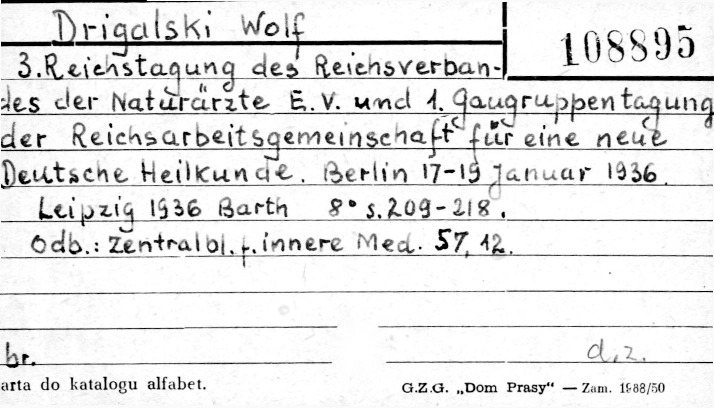 Drigalski Wolf
108895
3. Reichstagung des Reichsverban-
des der Naturärzte E.V. und 1. Gaugruppentagung
der Reichsarbeitsgemeinschaft für eine neue
Deutsche Heilkunde. Berlin 17-19 Januar 1936.
Leipzig 1936 Barth 8° s. 209-218.
Odb.: Zentralbl. f. innere Med. 57, 12.
br.
d.z.
arta do katalogu alfabet.
G.Z.G. „Dom Prasy“ — Zam. 1988/50